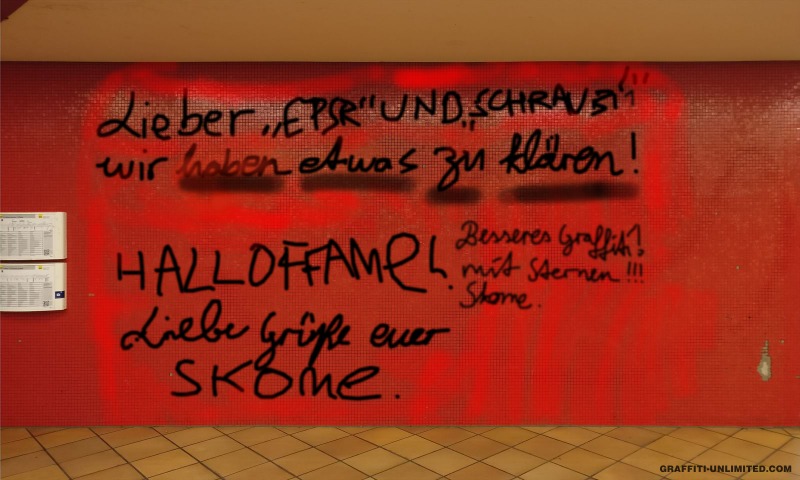 Lieber „EPSR" UND „SCHRAUBI"
wir haben etwas zu klären!
HALLOFFAME!
Liebe Grüße euer
SKOME.
Besseres Graffiti!
mit Sternen !!!
Skome.
GRAFFITI-UNLIMITED.COM